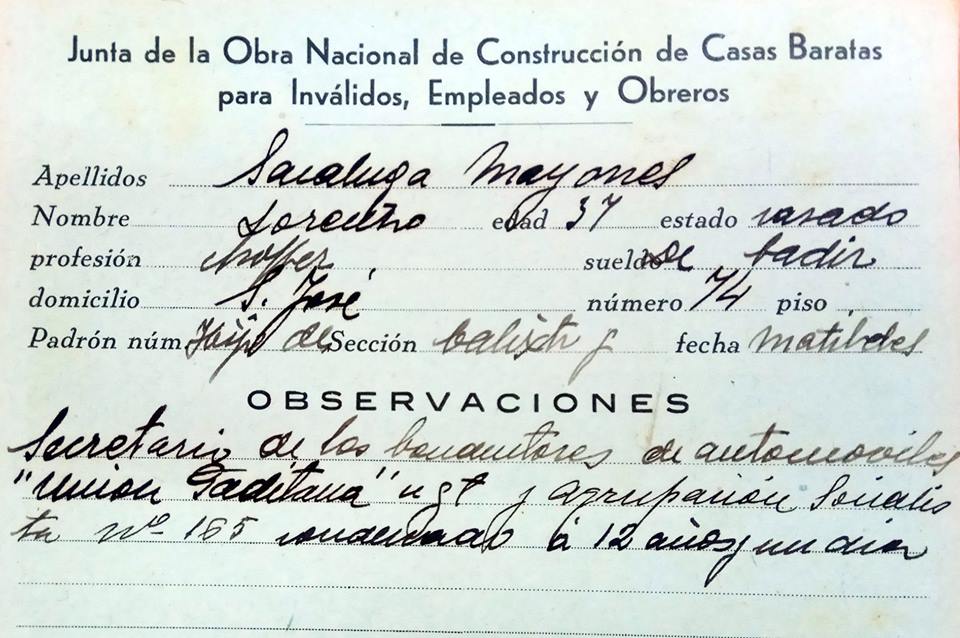 Junta de la Obra Nacional de Construcción de Casas Baratas
para Inválidos, Empleados y Obreros
Apellidos Saraluga Mayones
Nombre Lorenzo edad 37 estado casado
profesión choffer sueldo de Cadiz
domicilio S. José número 74 piso
Padrón núm. Hijo de Sección Calixto y fecha Matildes
OBSERVACIONES
Secretario de los Conductores de automoviles
"Union Gaditana" ugt y agrupación Socialis
ta nº 165 condenado á 12 años y un dia